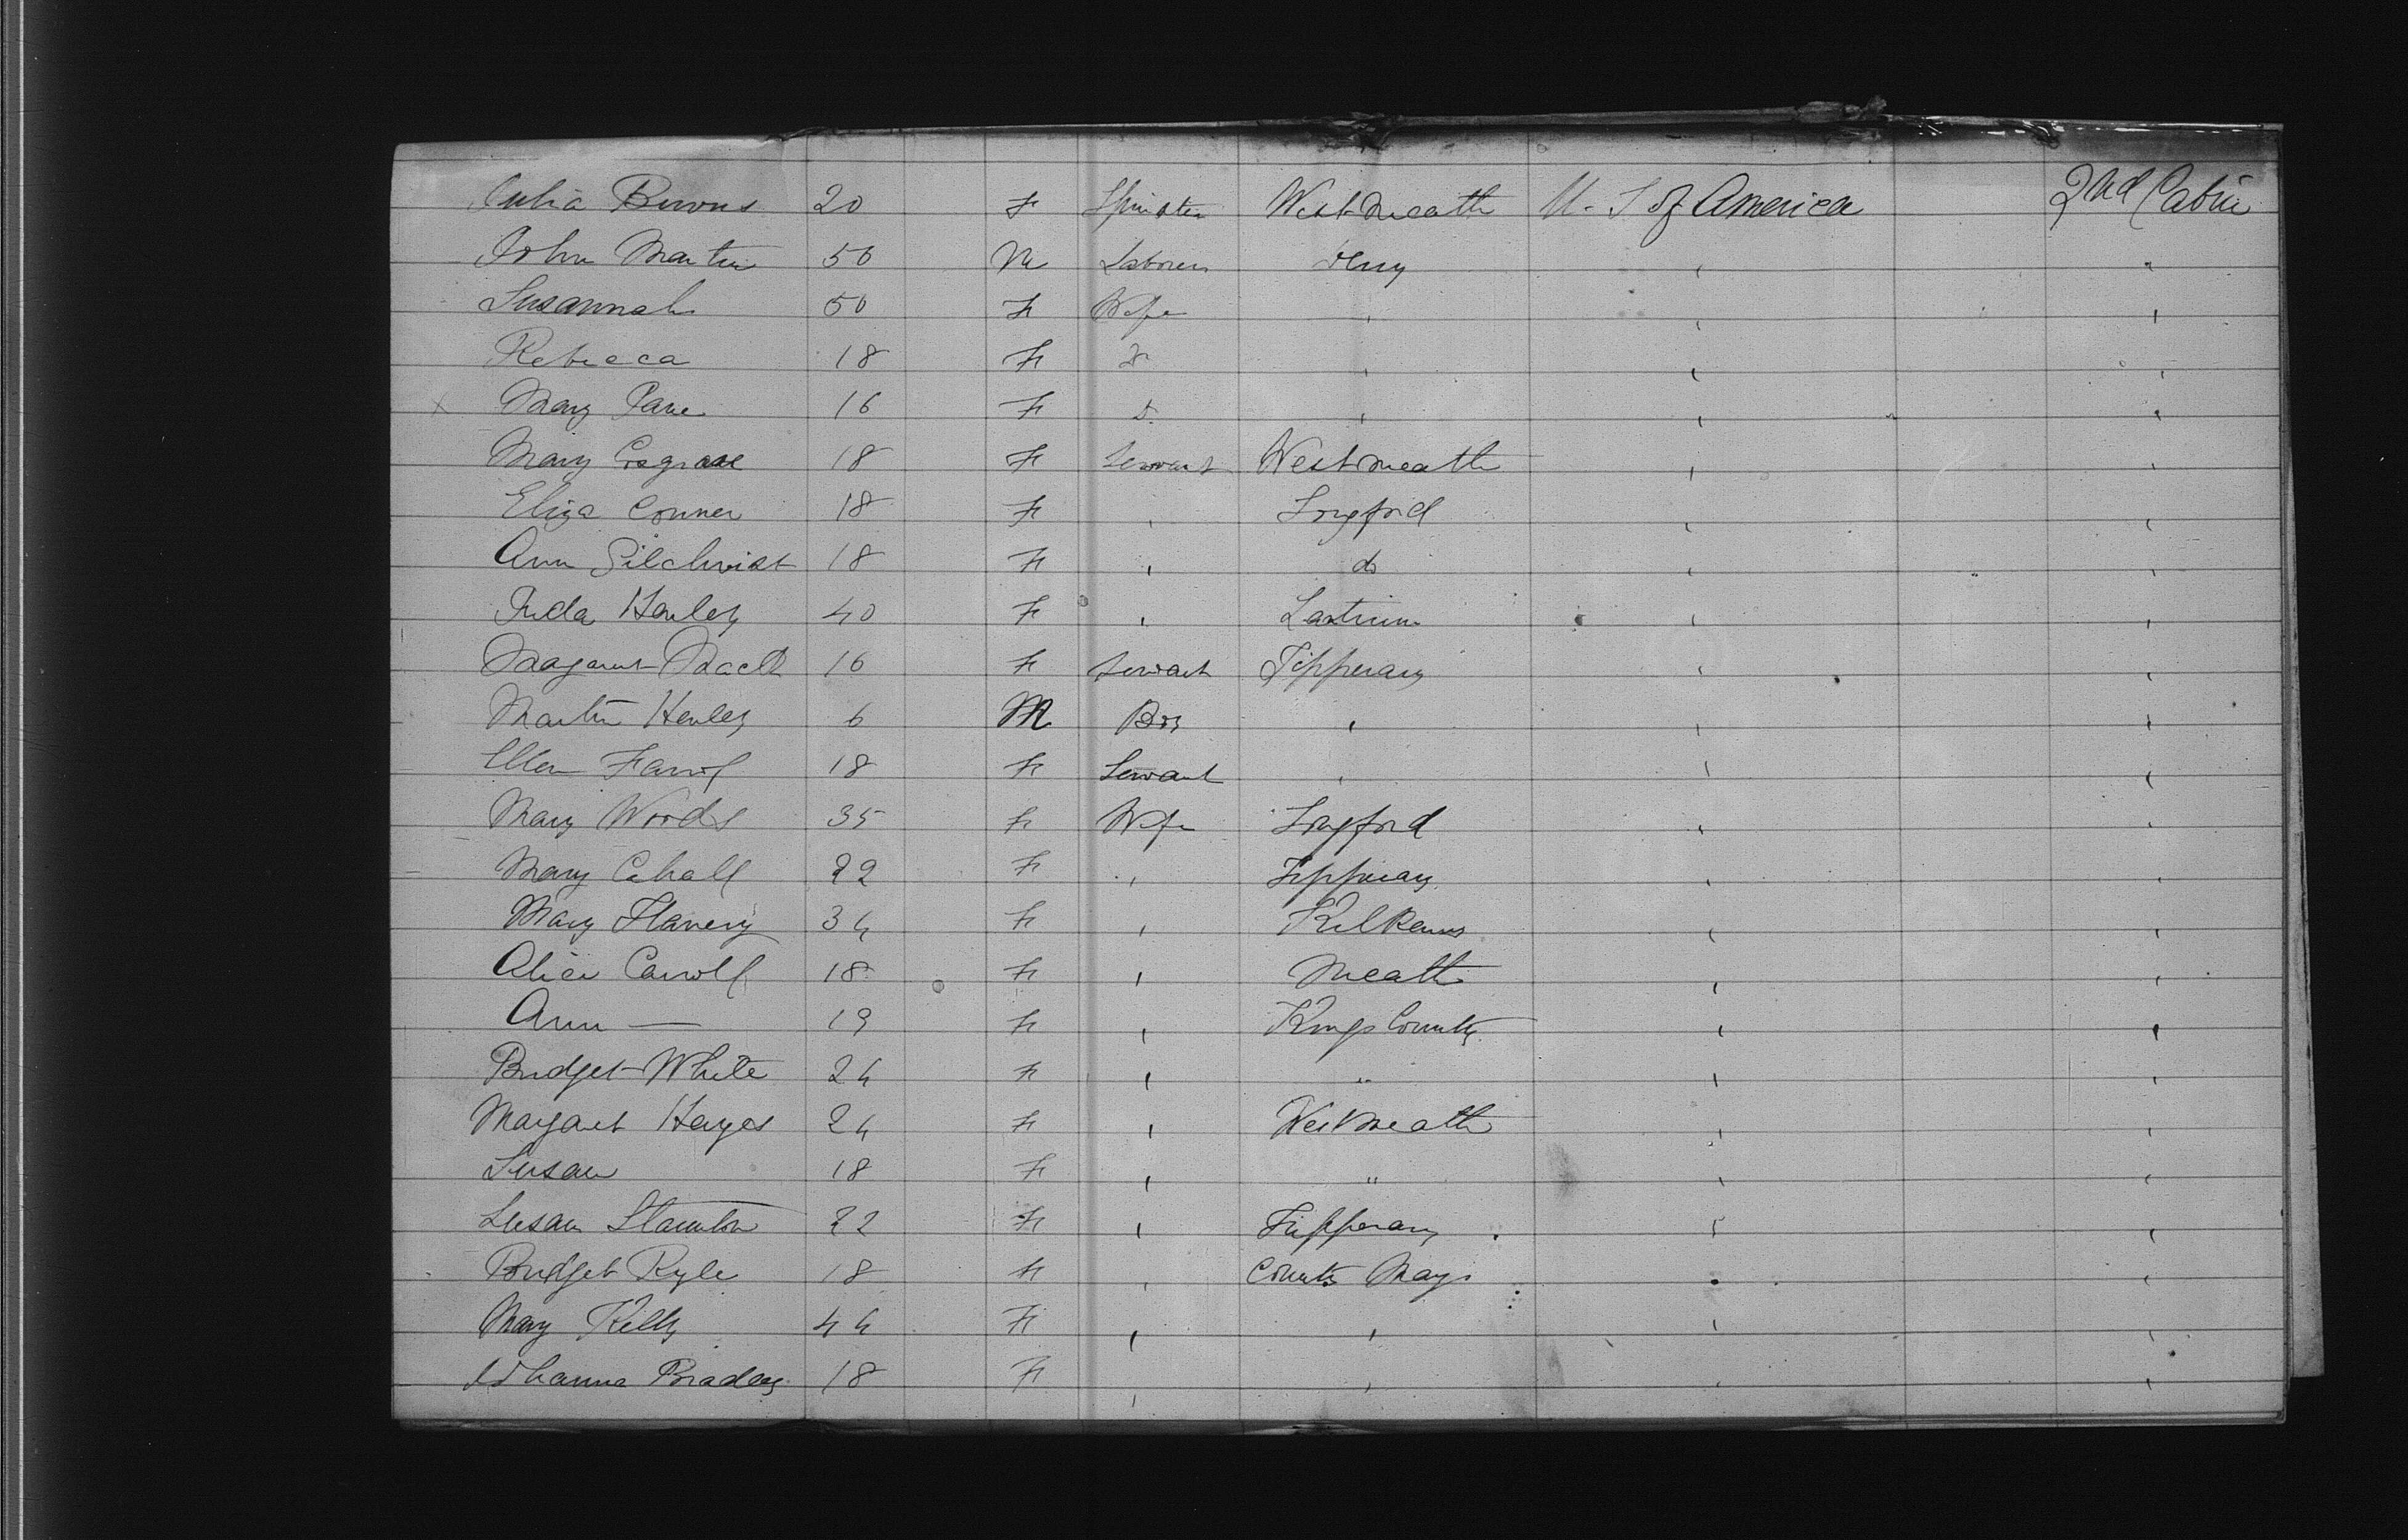 Julia Burns 20 F Spinster Westmeath U. S of America 2nd Cabin
John Martin 50 M Laborer " "
Susannah 50 F Wife " " "
Rebecca 18 F D " " "
x Mary Jane 16 F D " " "
Mary Cosgrave 18 F Servant Westmeath " "
Eliza Conner 18 F " Longford " "
Ann Gilchrist 18 F " do " "
Henley 40 F " Leatrim " "
Margaret 16 F Servant Tipperary " "
Martin Henley 6 M Boy " " "
Ellen Farrol 18 F Servant " " "
Mary Woods 35 F Wife Longford " "
Mary Cahall 22 F " Tipperary " "
Mary Flanery 34 F " Kilkenny " "
Alice Carroll 18 F " Meath " "
Ann — 19 F " Kings County " "
Bridget White 24 F " " " "
Margaret Hayes 24 F " Westmeath " "
Susan 18 F " " " "
Susan Staunton 22 F " Tipperary " "
Bridget Kyle 18 F " County Mayo " "
Mary Kelly 44 F " " " "
Johanna Bradley 18 F " " " "